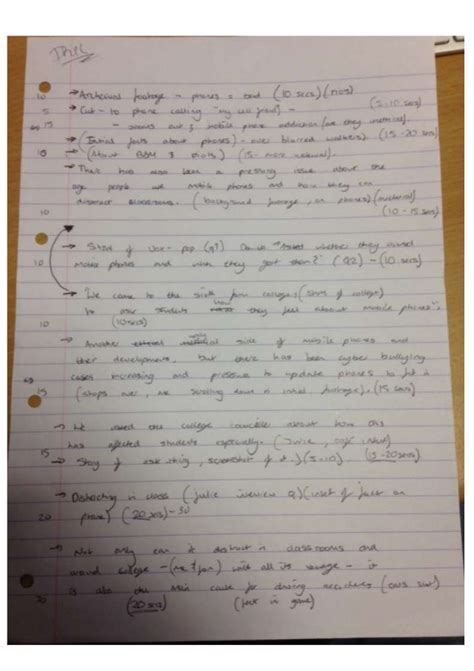 10 → Archival footage - phones = bad (10 secs) (riots)
5 → Cut - to phone calling "my old friend" - (5-10 secs)
15 - zooms out & mobile phone addiction (are they
→ (Initial facts about phones) - over blurred walkers) (15-20 secs)
15 → (About BBM & riots) (15 - more material).
→ There has also been a pressing issue about the
age people use mobile phones and how they can
distract classrooms. (background footage, on phones) (material)
10 (10-15 secs)
→ Start of vox-pop (q?) Do in "Asked whether they owned
10 mobile phones and when they got them?" (Q2) - (10 secs)
→ "We came to the sixth form college, (shots of college)
to ask students how they feel about mobile phones".
10 (10 secs)
→ Another side of mobile phones and
their development, but there has been cyber bullying
cases increasing and pressure to update phones to fit in
15 (shops over, me scrolling down in initial footage). (15 secs)
→ We asked the college councillor about how this
has affected students especially. (Julie,
15 → Story of ask, screenshot of it.) (5-10) (15-20 secs)
→ Distracting in class (Julie interview Q) (inset of fact on
20 phone) (20 secs) - 30
→ Not only can it distract in classrooms and
around college - (me + fran) with all its usage - it
is also the main cause for driving accidents (cars shot)
20 (20 secs) (fact in game)